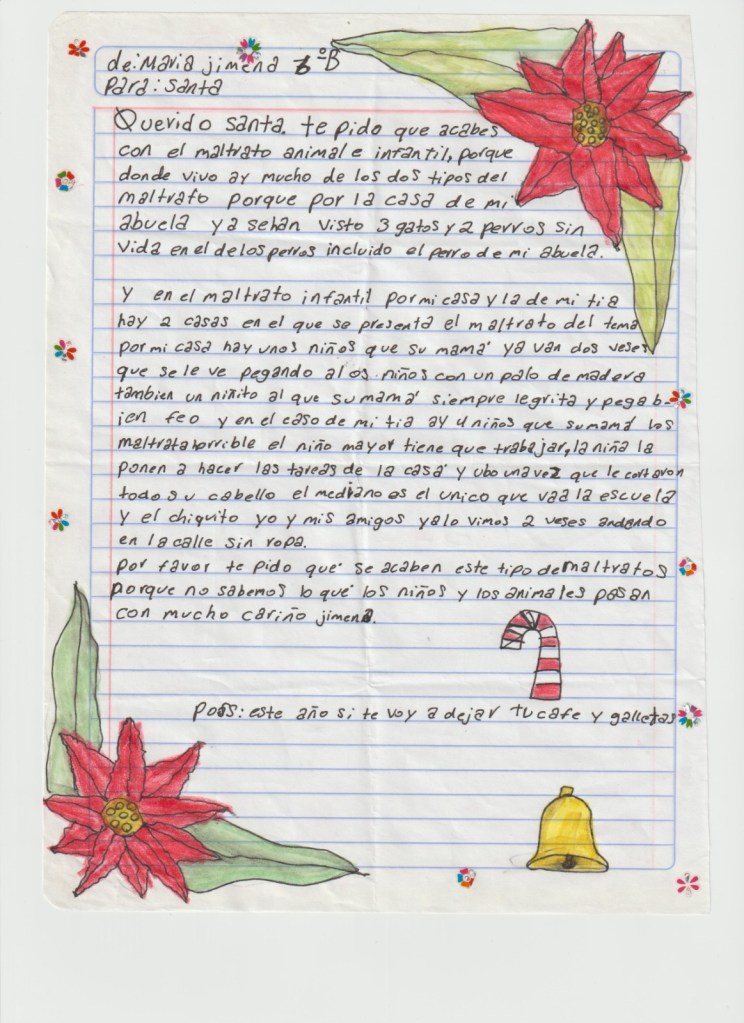 de: Maria jimena 6°B
Para: Santa
Querido santa. te pido que acabes
con el maltrato animal e infantil, porque
donde vivo ay mucho de los dos tipos del
maltrato porque por la casa de mi
abuela ya sehan visto 3 gatos y 2 perros sin
vida en el delosperros incluido el perro de mi abuela.
Y en el maltrato infantil por mi casa y la de mi tia
hay 2 casas en el que se presenta el maltrato del tema
por mi casa hay unos niños que su mamá ya van dos veses
que se le ve pegando al os niños con un palo de madera
tambien un niñito al que su mamá siempre legrita y pega b-
ien feo y en el caso de mi tia ay 4 niños que sumamá los
maltrata horrible el niño mayor tiene que trabajar, la niña la
ponen a hacer las tareas de la casa y ubo unavez que le cortaron
todo su cabello el mediano es el unico que vaa la escuela
y el chiquito yo y mis amigos yalo vimos 2 veses andando
en la calle sin ropa.
por favor te pido que se acaben este tipo de maltratos
porque no sabemos lo que los niños y los animales pasan
con mucho cariño jimena.
poss: este año si te voy a dejar tu cafe y galletas